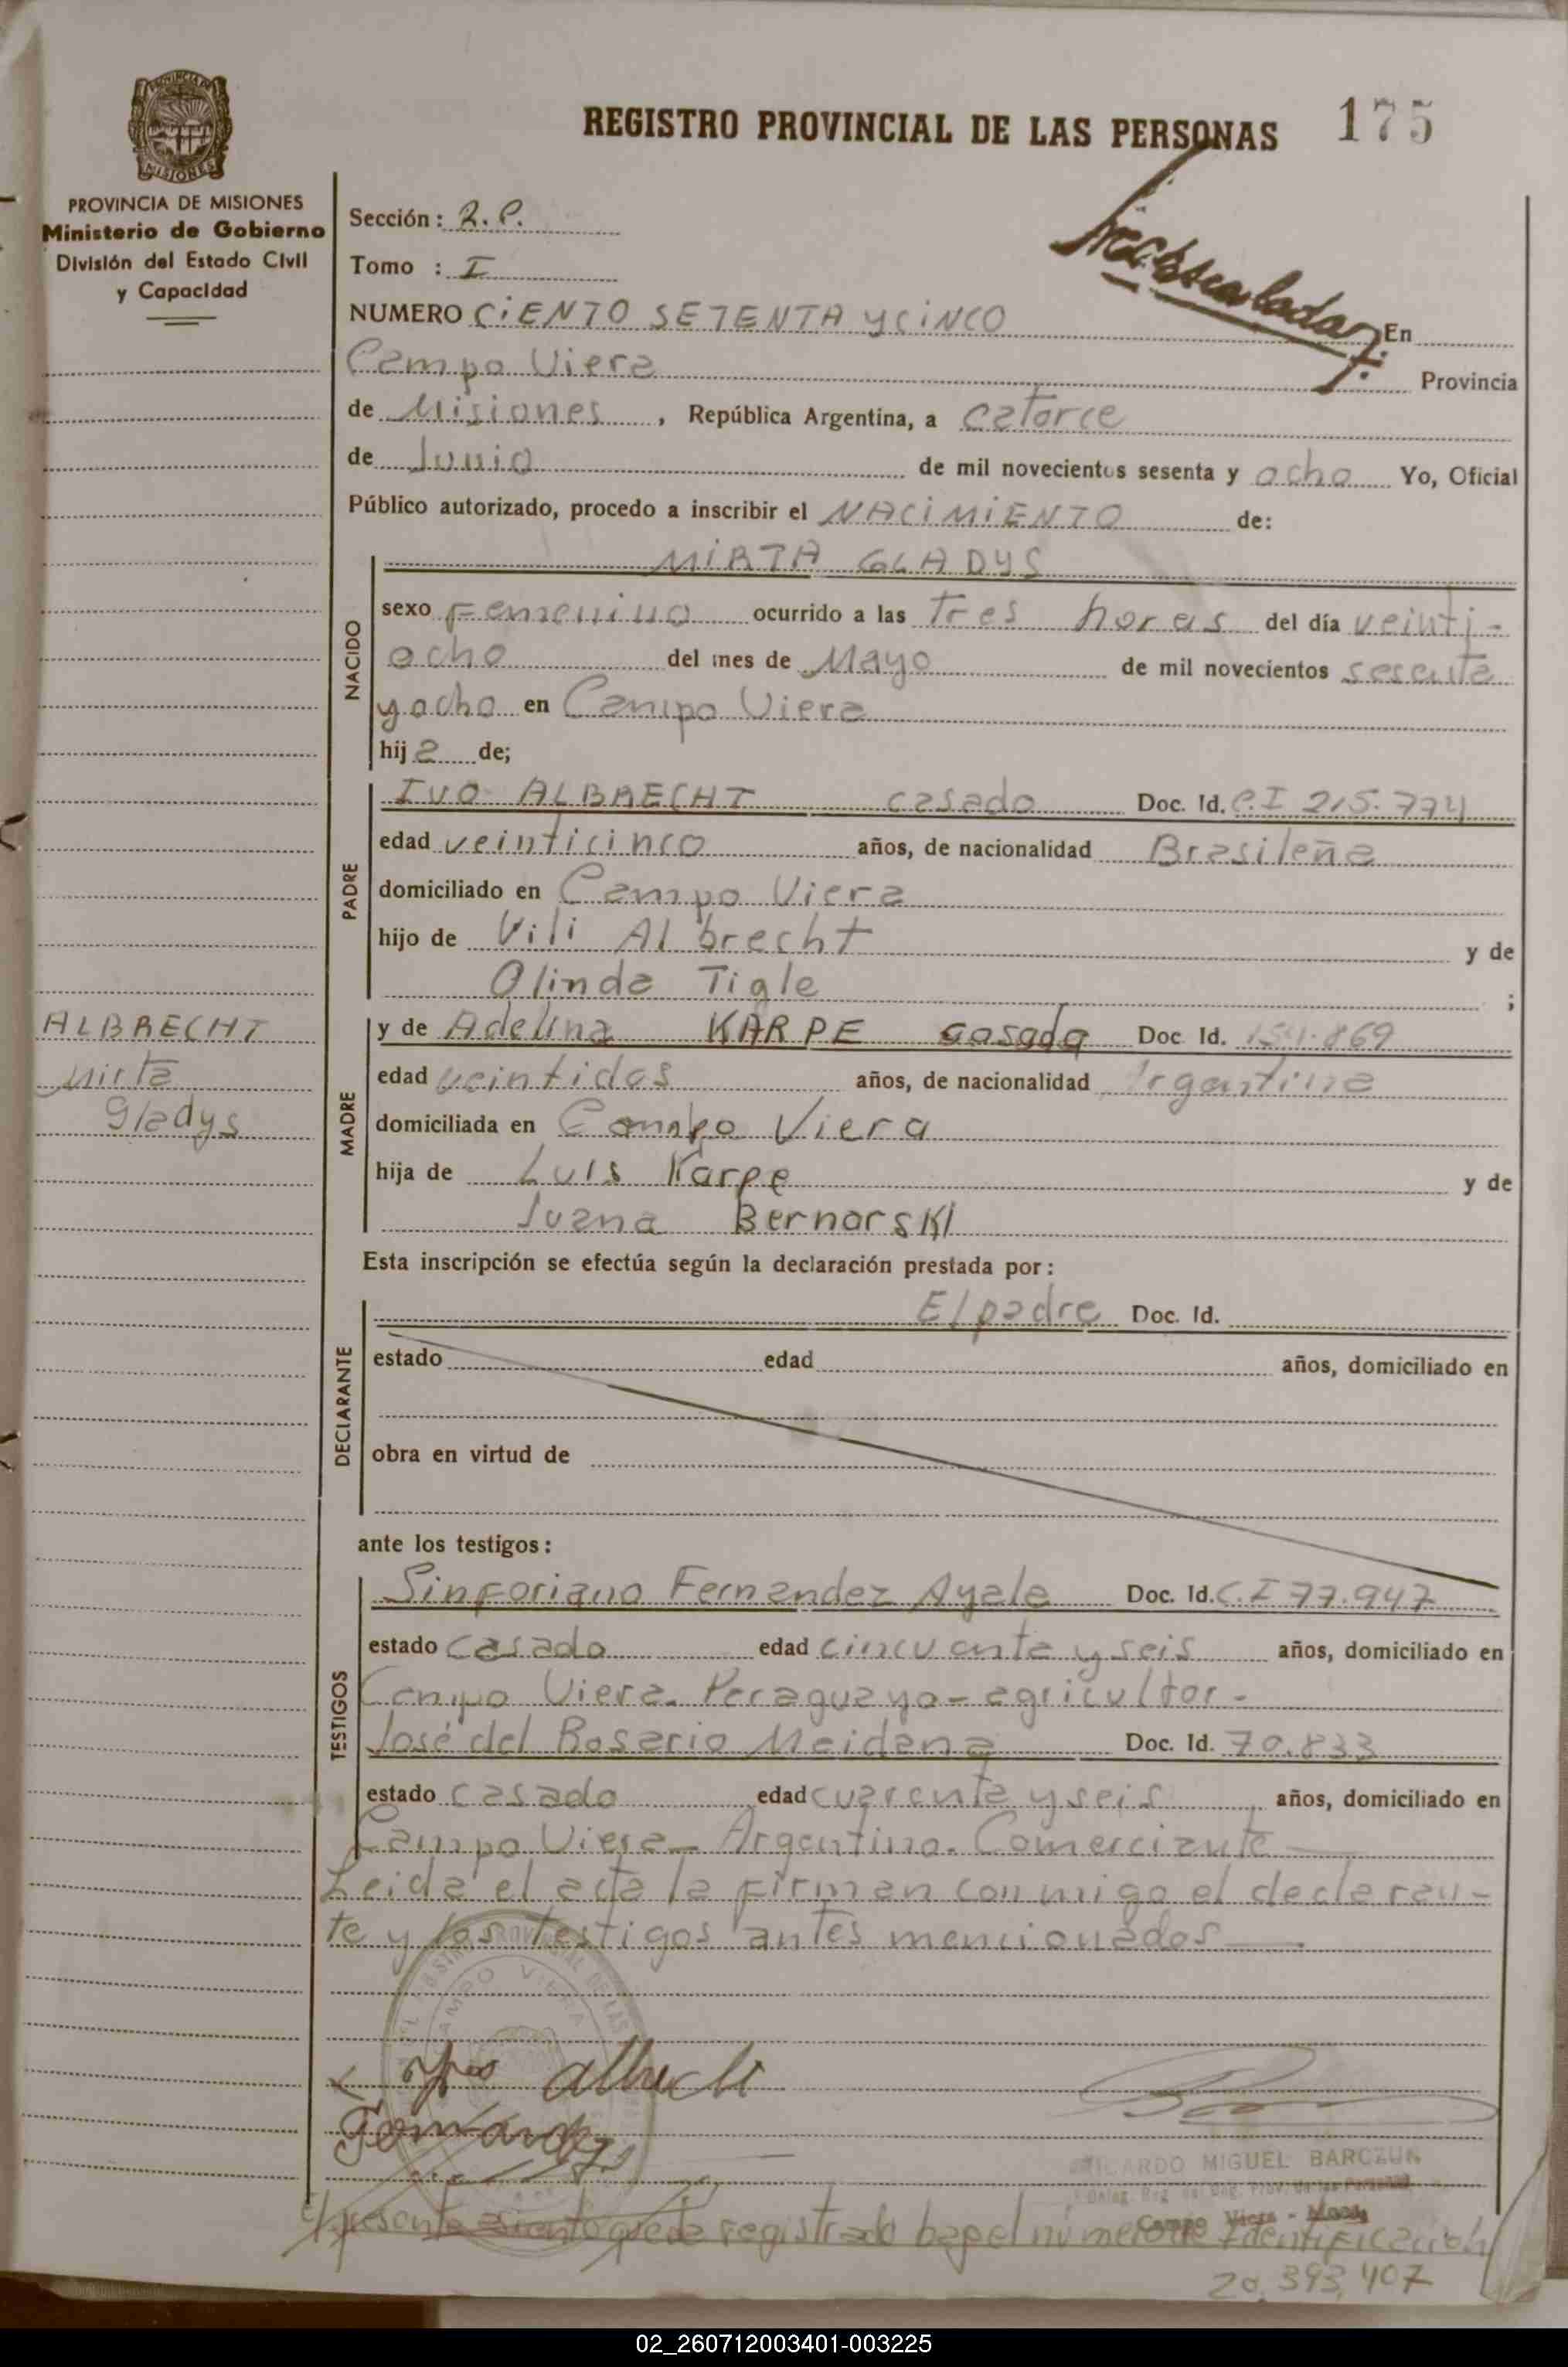 REGISTRO PROVINCIAL DE LAS PERSONAS 175
PROVINCIA DE MISIONES
MISIONES
PROVINCIA DE MISIONES
Ministerio de Gobierno
División del Estado Civil
y Capacidad
Sección: R.P.
Tomo : I
NUMERO CIENTO SETENTA Y CINCO En
Campo Viera Provincia
de Misiones, República Argentina, a catorce
de Junio de mil novecientos sesenta y ocho Yo, Oficial
Público autorizado, procedo a inscribir el NACIMIENTO de:
MIRTA GLADYS
NACIDO
sexo Femenino ocurrido a las Tres horas del día veinti-
ocho del mes de Mayo de mil novecientos sesenta
y ocho en Campo Viera
hija de;
PADRE
IVO ALBRECHT casado Doc. Id. C.I 215.774
edad veinticinco años, de nacionalidad Brasileña
domiciliado en Campo Viera
hijo de Vili Albrecht y de
Olinda Tigle ;
ALBRECHT
Mirta
Gladys
MADRE
y de Adelina KARPE casada Doc. Id. 154.869
edad veintidos años, de nacionalidad Argentina
domiciliada en Campo Viera
hija de Luis Karpe y de
Juana Bernarski
Esta inscripción se efectúa según la declaración prestada por:
DECLARANTE
El padre Doc. Id.
estado edad años, domiciliado en
obra en virtud de
ante los testigos:
TESTIGOS
Sinforiano Fernandez Ayala Doc. Id. C.I 77.947
estado casado edad cincuenta y seis años, domiciliado en
Campo Viera. Paraguayo - agricultor -
José del Rosario Maidana Doc. Id. 70.833
estado casado edad cuarenta y seis años, domiciliado en
Campo Viera - Argentino. Comerciante
Leida el acta la firman conmigo el declaran-
te y los testigos antes mencionados
CAMPO VIERA
RICARDO MIGUEL BARCZUK
Campo Viera - Mnes
El presente asiento queda registrado bajo el número de Identificación
20.393.407
02_260712003401-003225